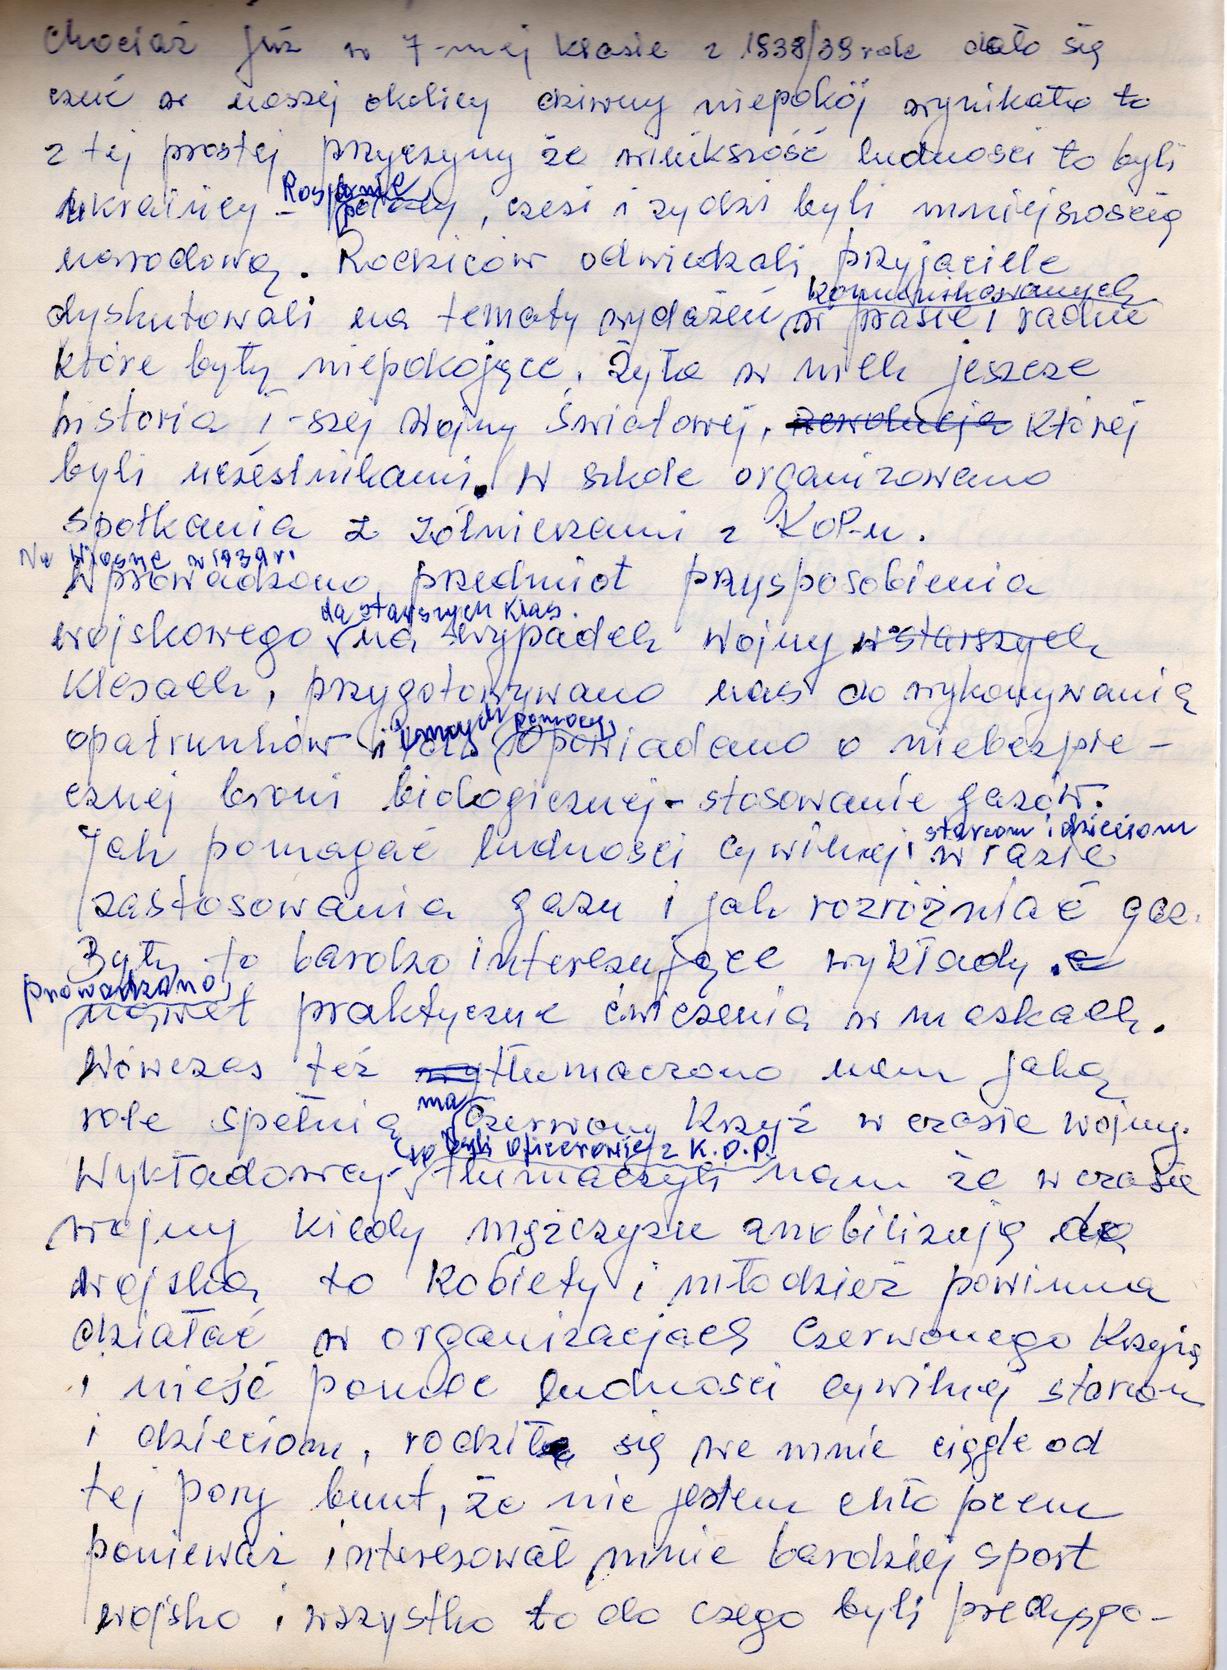 Chociaż już w 7-mej klasie z 1938/39 roku dało się
czuć w naszej okolicy dziwny niepokój wynikało to
z tej prostej przyczyny że wieikszość ludności to byli
ukraińcy - Rosjanie
polacy, czesi i żydzi byli mniejszością
narodową. Rodziców odwiedzali przyjaciele
komunikowanych
dyskutowali na tematy wydażeń w prasie i radiu
które były niepokojące. Żyła w nich jeszcze
historia I-szej Wojny Światowej, rewolucja której
byli uczestnikami. W szkole organizowano
spotkania z żołnierzami z KOP-u.
Na wiosnę w 1939 r.
Wprowadzono przedmiot przysposobienia
dla starszych klas.
wojskowego na wypadek wojny w starszych
klasach, przygotowywano nas do wykonywania
opatrunków i innych pomocy,
Opowiadano o niebezpie-
cznej broni biologicznej - stosowanie gazów.
Jak pomagać ludności cywilnej, starcom i dzieciom
w razie
zastosowania gazu i jak rozróżniać gaz.
Były to bardzo interesujące wykłady.
prowadzano,
nawet praktyczne ćwiczenia w maskach.
Wówczas też tłumaczono nam jaką
role spełnia ma Czerwony Krzyż w czasie wojny.
to byli oficerowie z K.O.P.
Wykładowcy - tłumaczyli nam że w czasie
wojny kiedy mężczyzn zmobilizują do
wojska to kobiety i młodzież powinna
działać w organizacjach Czerwonego Krzyża
i nieść pomoc ludności cywilnej starcom
i dzieciom, rodziła się we mnie ciągle od
tej pory bunt, że nie jestem chłopcem
ponieważ interesował mnie bardziej sport
wojsko i wszystko to do czego byli predyspo-